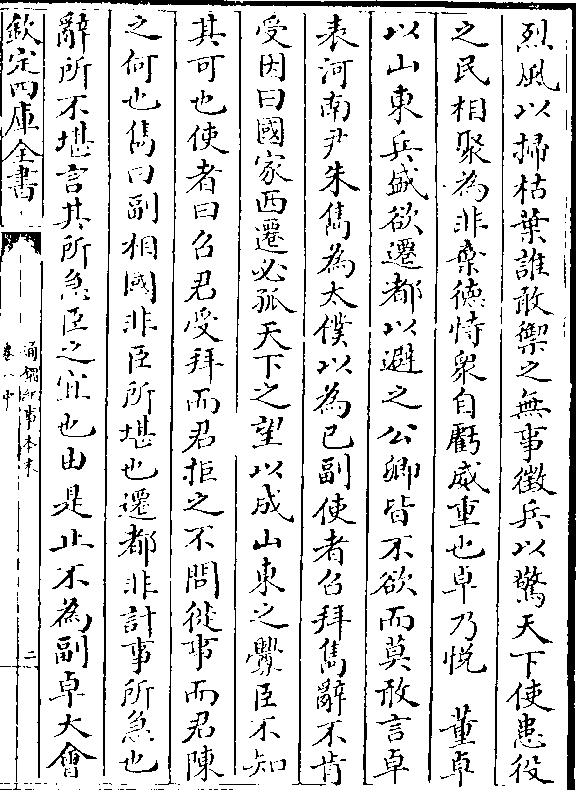 烈風以掃枯葉誰敢禦之無事徵兵以驚天下使患役
之民相聚為非棄德恃衆自虧威重也卓乃悅　董卓
以山東兵盛欲遷都以避之公卿皆不欲而莫敢言卓
表河南尹朱儁為太僕以為己副使者召拜儁辭不肯
受因曰國家西遷必孤天下之望以成山東之釁臣不知
其可也使者曰召君受拜而君拒之不問徙事而君陳
之何也儁曰副相國非臣所堪也遷都非計事所急也
辭所不堪言其所急臣之宜也由是止不為副卓大會
欽定四庫全書
通鑑紀事本末
卷八中
二